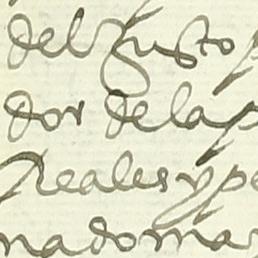 del Justo
dor de la
Reales y pe
nado mar